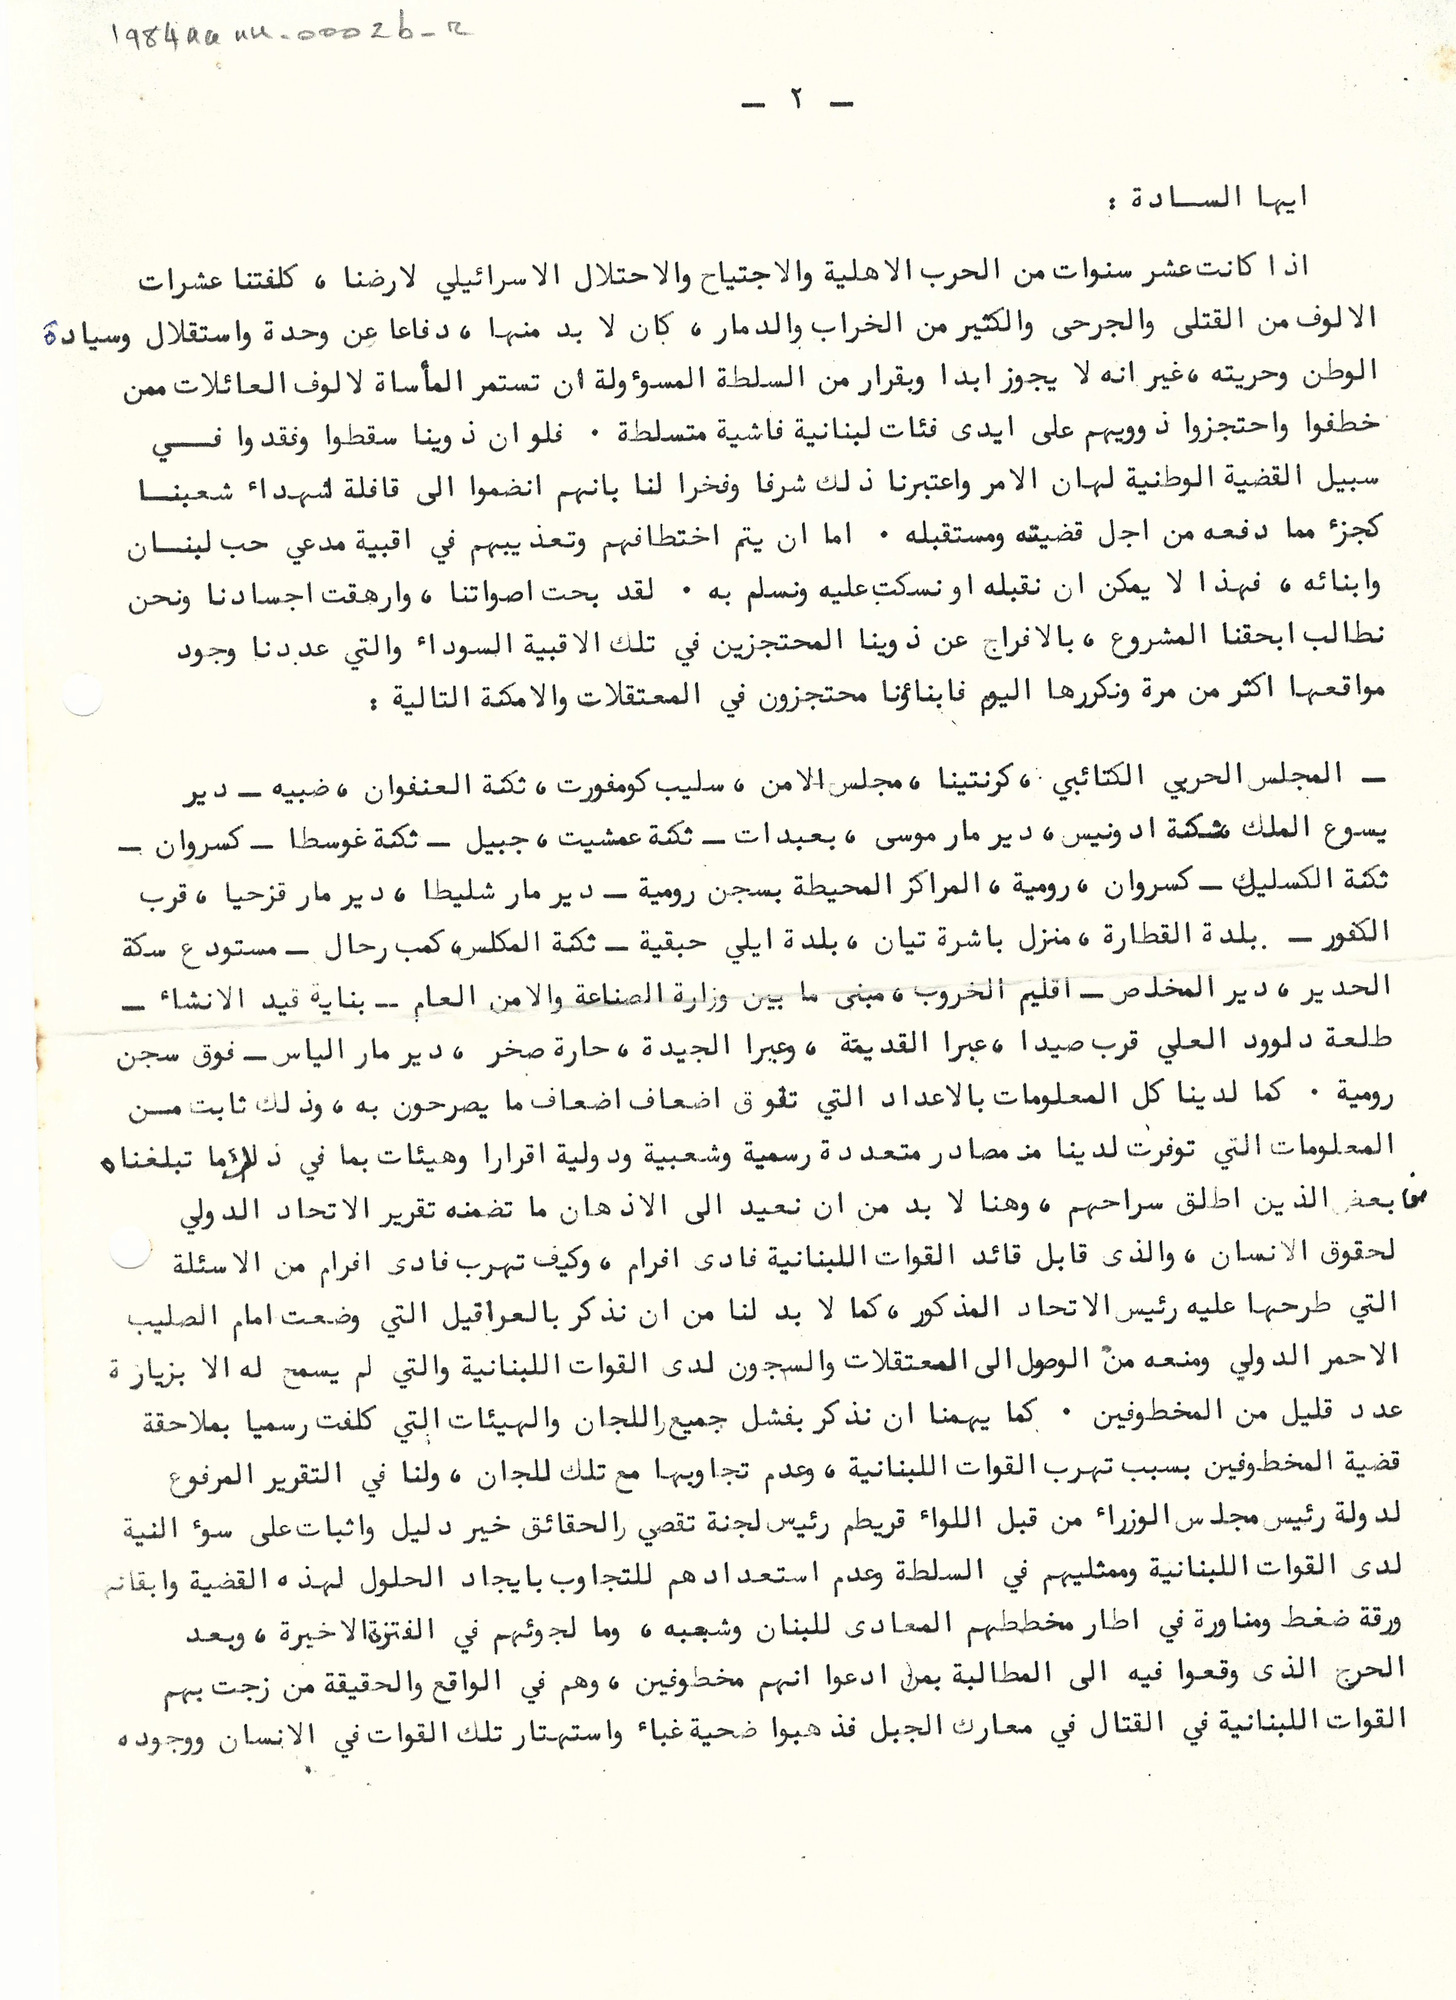 1984
— ٢ —
ايها الســادة :
اذا كانت عشر سنوات من الحرب الاهلية والاجتياح والاحتلال الاسرائيلي لارضنا ، كلفتنا عشرات
الالوف من القتلى والجرحى والكثير من الخراب والدمار ، كان لا بد منها ، دفاعا عن وحدة واستقلال وسيادة
الوطن وحريته ، غير انه لا يجوز ابدا وبقرار من السلطة المسوءولة ان تستمر المأساة لالوف العائلات ممن
خطفوا واحتجزوا ذوويهم على ايدى فئات لبنانية فاشية متسلطة . فلو ان ذوينا سقطوا وفقدوا فــي
سبيل القضية الوطنية لهان الامر واعتبرنا ذلك شرفا وفخرا لنا بانهم انضموا الى قافلة شهداء شعبنــا
كجزء مما دفعه من اجل قضيته ومستقبله . اما ان يتم اختطافهم وتعذيبهم في اقبية مدعي حب لبنــان
وابنائه ، فهذا لا يمكن ان نقبله او نسكت عليه ونسلم به . لقد بحت اصواتنا ، وارهقت اجسادنا ونحن
نطالب ابحقنا المشروع ، بالافراج عن ذوينا المحتجزين في تلك الاقبية السوداء والتي عددنا وجود
مواقعها اكثر من مرة ونكررها اليوم فابناؤنا محتجزون في المعتقلات والامكنة التالية :
— المجلس الحربي الكتائبي ، كرنتينا ، مجلس الامن ، سليب كومفورت ، ثكنة العنفوان ، ضبيه — دير
يسوع الملك ثكنة ادونيس ، دير مار موسى ، بعبدات — ثكنة عمشيت ، جبيل — ثكنة غوسطا — كسروان —
ثكنة الكسليك — كسروان ، رومية ، المراكز المحيطة بسجن رومية — دير مار شليطا ، دير مار قزحيا ، قرب
الكفور — بلدة القطارة ، منزل باشرة تيان ، بلدة ايلي حبقية — ثكنة المكلس ، كمب رحال — مستودع سكة
الحدير ، دير المخلص — اقليم الخروب ، مبنى ما بين وزارة الصناعة والامن العام — بناية قيد الانشاء —
طلعة دلوود العلي قرب صيدا ، عبرا القديمة ، وعبرا الجيدة ، حارة صخر ، دير مار الياس — فوق سجن
رومية . كما لدينا كل المعلومات بالاعداد التي تفوق اضعاف اضعاف ما يصرحون به ، وذلك ثابت مــن
المعلومات التي توفرت لدينا من مصادر متعددة رسمية وشعبية ودولية اقرارا وهيئات بما في ذلك ما تبلغناه
من بعض الذين اطلق سراحهم ، وهنا لا بد من ان نعيد الى الاذهان ما تضمنه تقرير الاتحاد الدولي
لحقوق الانسان ، والذى قابل قائد القوات اللبنانية فادى افرام ، وكيف تهرب فادى افرام من الاسئلة
التي طرحها عليه رئيس الاتحاد المذكور ، كما لا بد لنا من ان نذكر بالعراقيل التي وضعت امام الصليب
الاحمر الدولي ومنعه من الوصول الى المعتقلات والسجون لدى القوات اللبنانية والتي لم يسمح له الا بزيارة
عدد قليل من المخطوفين . كما يهمنا ان نذكر بفشل جميع اللجان والهيئات التي كلفت رسميا بملاحقة
قضية المخطوفين بسبب تهرب القوات اللبنانية ، وعدم تجاوبها مع تلك للجان ، ولنا في التقرير المرفوع
لدولة رئيس مجلس الوزراء من قبل اللواء قريطم رئيس لجنة تقصي الحقائق خير دليل واثبات على سوء النية
لدى القوات اللبنانية وممثليهم في السلطة وعدم استعدادهم للتجاوب بايجاد الحلول لهذه القضية وابقائه
ورقة ضغط ومناورة في اطار مخططهم المعادى للبنان وشعبه ، وما لجوئهم في الفترة الاخيرة ، وبعد
الحرج الذى وقعوا فيه الى المطالبة بمن ادعوا انهم مخطوفين ، وهم في الواقع والحقيقة من زجت بهم
القوات اللبنانية في القتال في معارك الجبل فذهبوا ضحية غباء واستهتار تلك القوات في الانسان ووجوده